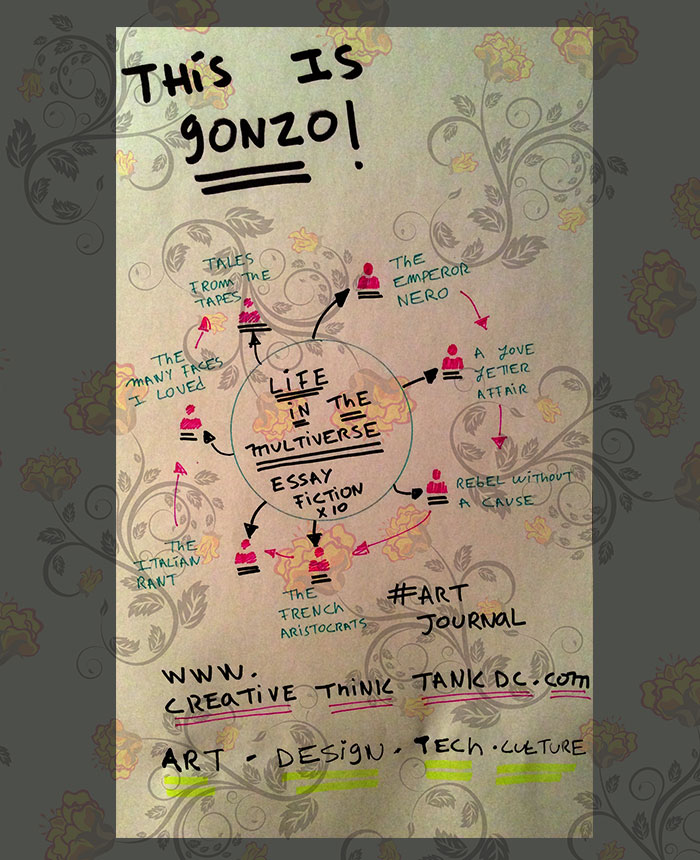 THIS IS
GONZO!
TALES
FROM THE
TAPES
THE
EMPEROR
NERO
A LOVE
LETTER
AFFAIR
REBEL WITHOUT
A CAUSE
THE
FRENCH
ARISTOCRATS
THE
ITALIAN
RANT
THE
MANY FACES
I LOVED
LIFE
IN THE
MULTIVERSE
ESSAY
FICTION
X 10
#ART
JOURNAL
WWW.
CREATIVE THINK TANK DC.COM
ART - DESIGN. TECH.CULTURE